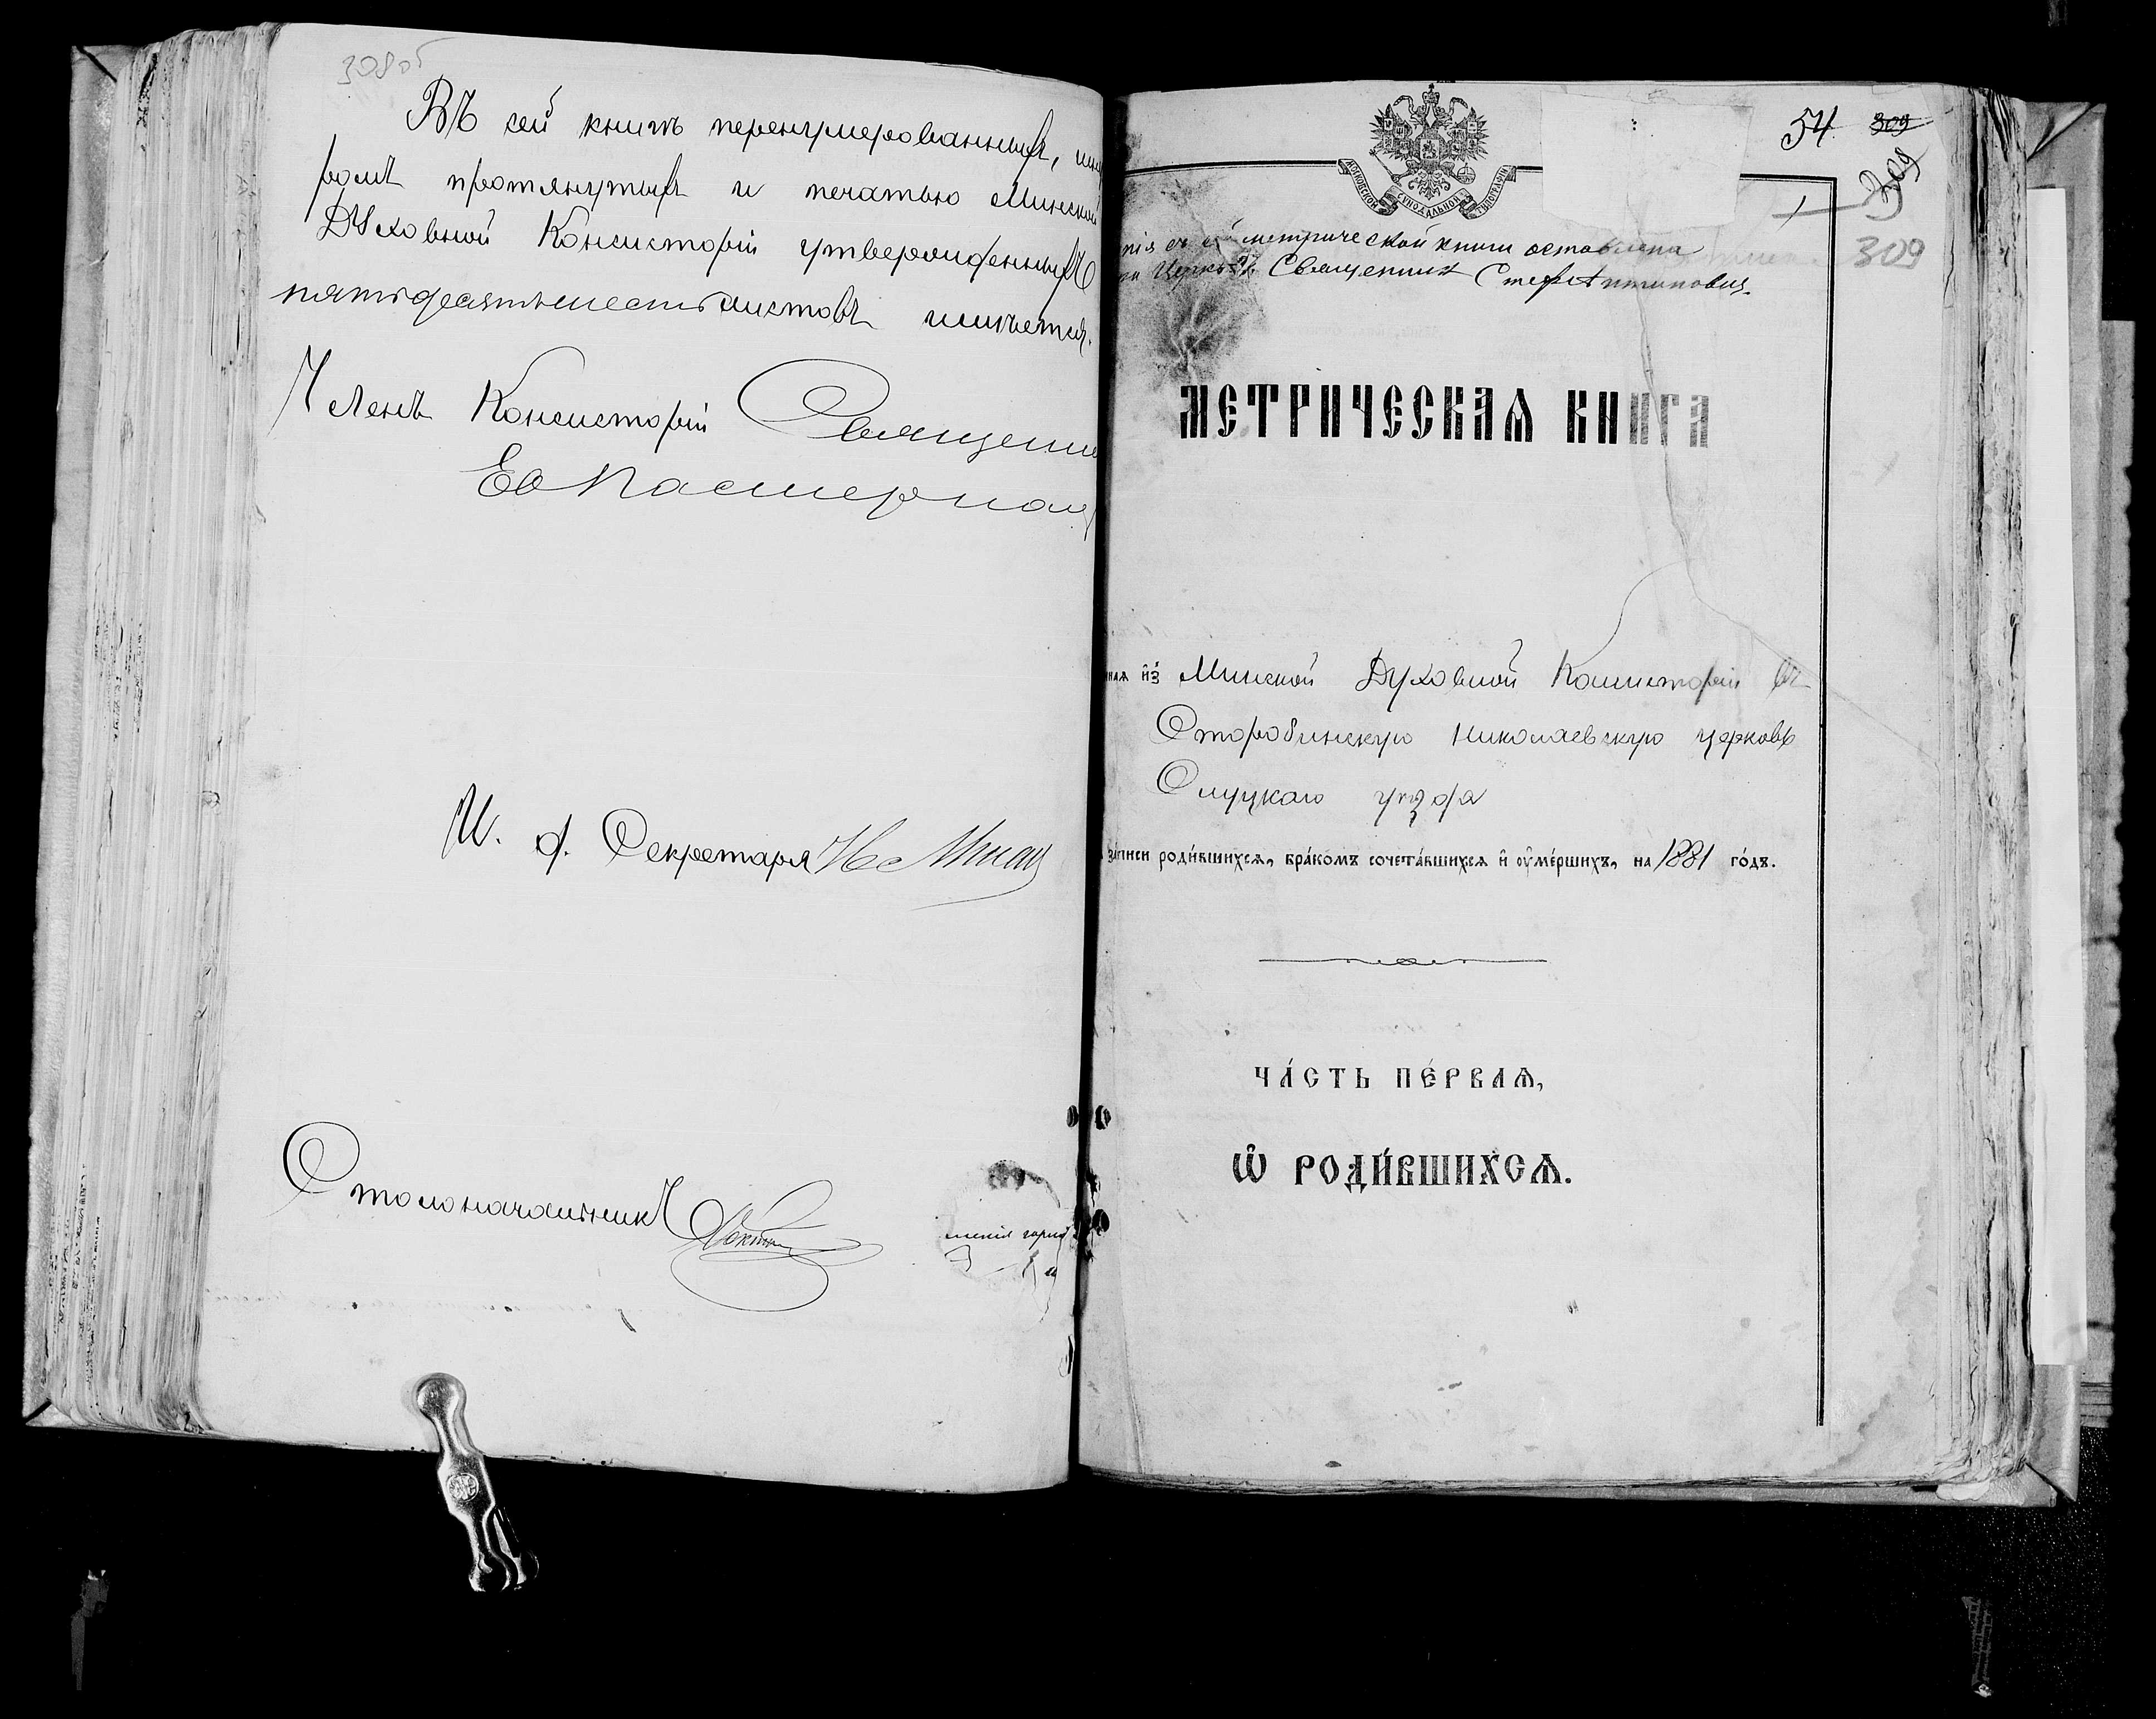 308об
Въ сей книгѣ перенумерованныхъ, шну
ромъ протянутыхъ и печатью Минской
Духовной Консисторіи утвержденныхъ
пятьдесятъ шесть листовъ имѣется.
Членъ Консисторіи Священни
И. д. Секретаря
Столоначальникъ
54 309
309
309
МОСКОВСКОЙ СѴНОДАЛЬНОЙ ТИПОГРАФІИ
пія съ сей метрической книги оставлена
при Церкви. Священникъ Стеф.
МЕТРИЧЕСКАѦ КНИГА
наѧ и҆з̾ Минской Духовной Консисторіи въ
Старобинскую Николаевскую церковь
Слуцкаго уѣзда
за́писи роди́вшихсѧ, бра́комъ сочета́вшихсѧ и҆ ᲂу҆ме́ршихъ, на 1881 го́дъ.
ЧА́СТЬ ПЕ́РВАѦ,
Ѡ҆ РОДИ́ВШИХСѦ.